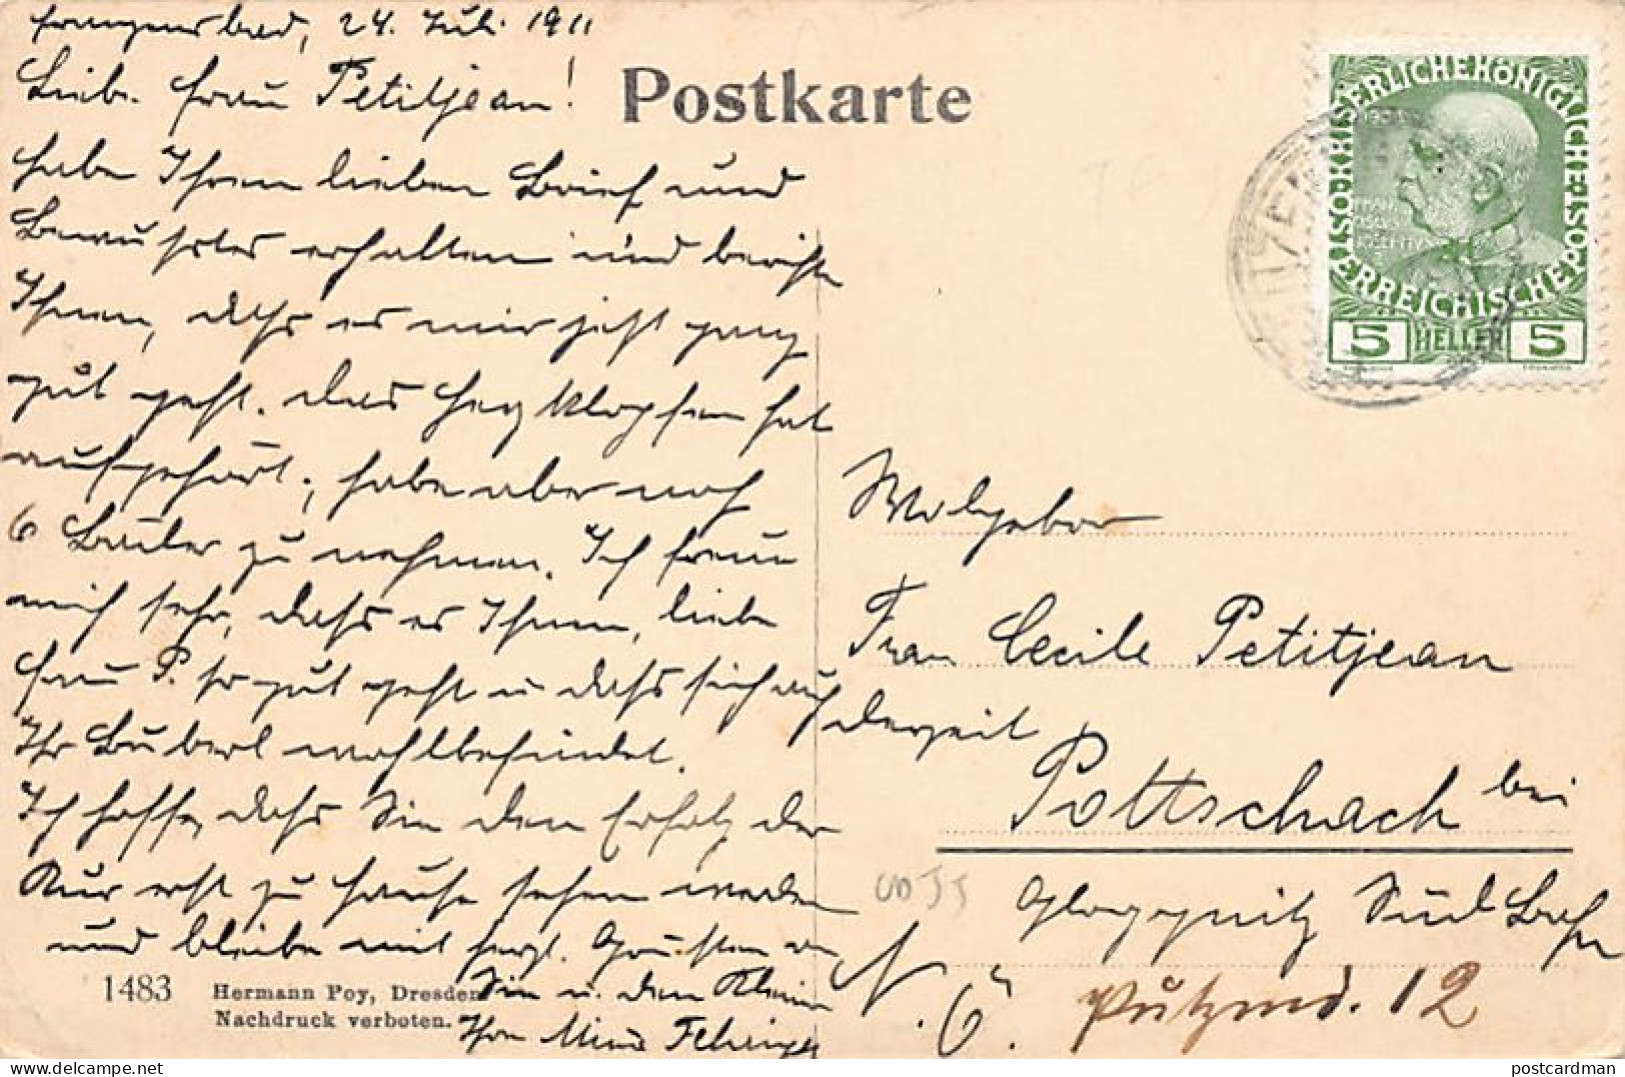 Franzensbad, 24. Juli 1911
Liebe Frau Petitjean!
Habe Ihren lieben Brief und
Bewußtes erhalten und berichte
Ihnen, daß es mir jetzt ganz
gut geht. Das Herzklopfen hat
aufgehört, habe aber noch
6 Bäder zu nehmen. Ich freue
mich sehr, daß es Ihnen, liebe
Frau P. so gut geht u. daß sich auch
Ihr Buberl wohlbefindet.
Ich hoffe, daß Sie den Erfolg der
Kur erst zu Hause sehen werden
und bleibe mit herzl. Grüßen an
Sie u. den Kleinen
Ihre Mina
1483
Hermann Poy, Dresden
Nachdruck verboten.
Postkarte
KAISERLICHE KÖNIGLICHE ÖSTERREICHISCHE POST
5 HELLER 5
Wolgebor
Frau Cecile Petitjean
derzeit
Pottschach bei
Gloggnitz Südbahn
N. Ö.
12
postcardman